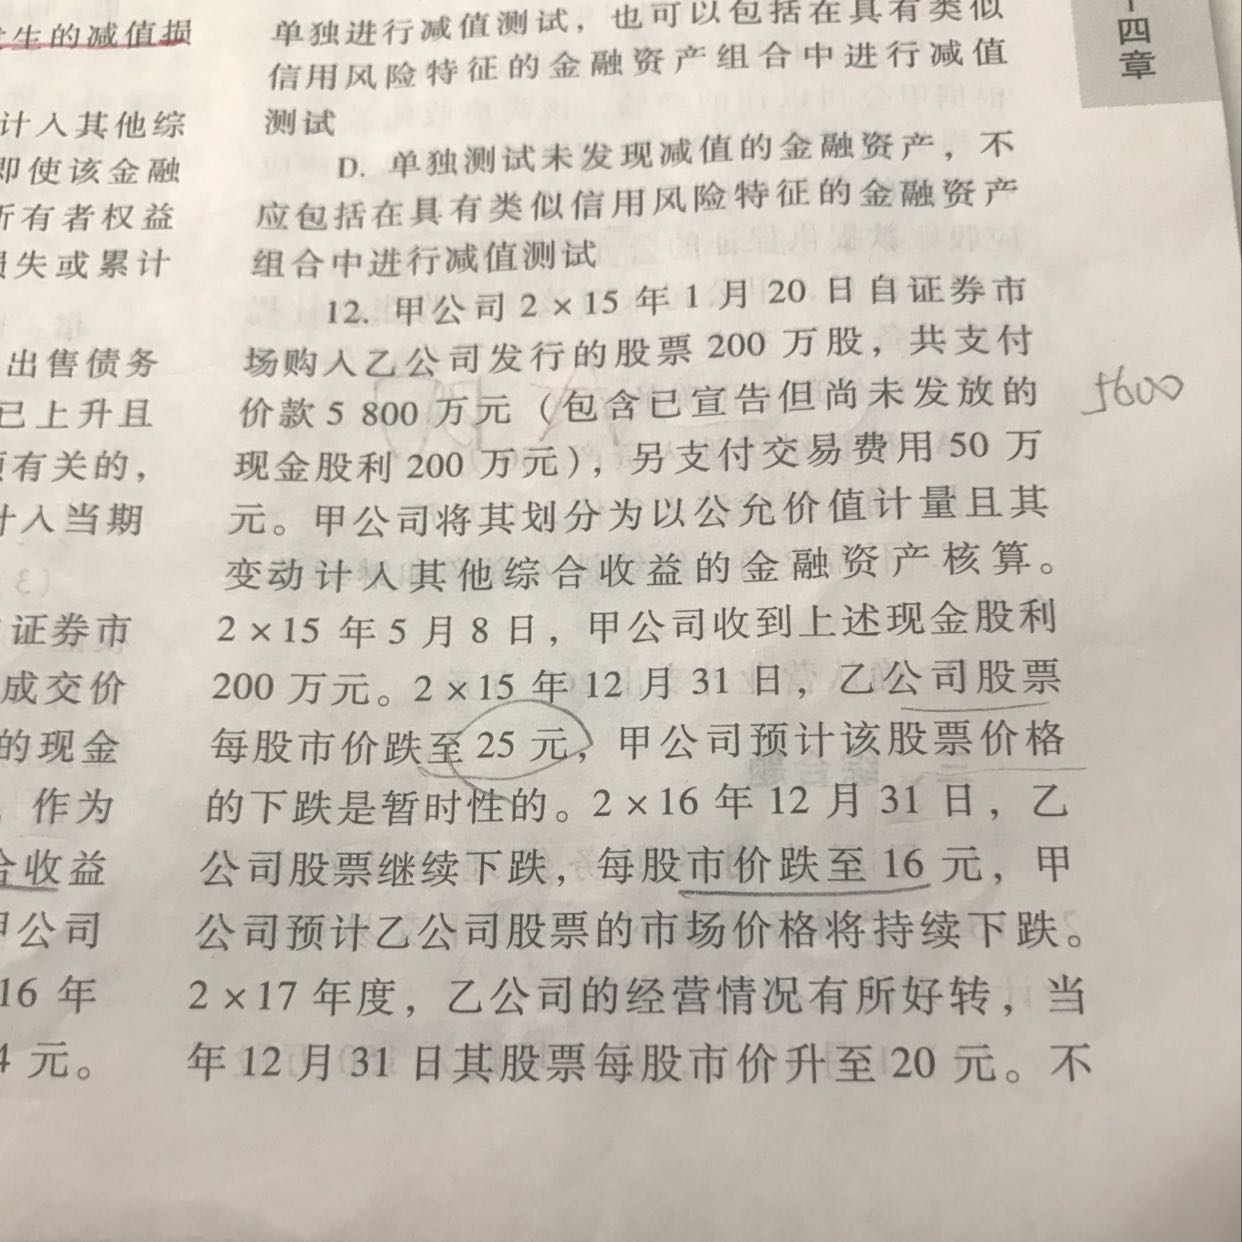 生的减值损
计入其他综
即使该金融
所有者权益
损失或累计
出售债务
已上升且
有关的，
计入当期
证券市
成交价
的现金
作为
合收益
甲公司
16 年
4 元。
单独进行减值测试，也可以包括在具有类似
信用风险特征的金融资产组合中进行减值
测试
D. 单独测试未发现减值的金融资产，不
应包括在具有类似信用风险特征的金融资产
组合中进行减值测试
12. 甲公司 2×15 年 1 月 20 日自证券市
场购入乙公司发行的股票 200 万股，共支付
价款 5 800 万元（包含已宣告但尚未发放的
现金股利 200 万元），另支付交易费用 50 万
元。甲公司将其划分为以公允价值计量且其
变动计入其他综合收益的金融资产核算。
2×15 年 5 月 8 日，甲公司收到上述现金股利
200 万元。2×15 年 12 月 31 日，乙公司股票
每股市价跌至 25 元，甲公司预计该股票价格
的下跌是暂时性的。2×16 年 12 月 31 日，乙
公司股票继续下跌，每股市价跌至 16 元，甲
公司预计乙公司股票的市场价格将持续下跌。
2×17 年度，乙公司的经营情况有所好转，当
年 12 月 31 日其股票每股市价升至 20 元。不
四章
5600